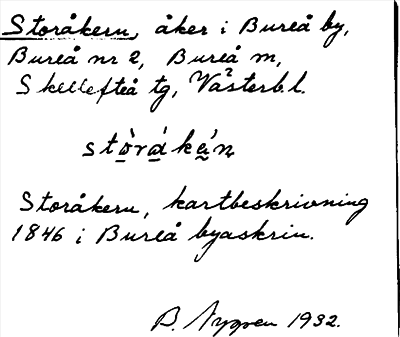 Storåkern, åker i Bureå by,
Bureå nr 2, Bureå m,
Skellefteå tg, Västerb.l.
Storåkern, kartbeskrivning
1846 i Bureå byaskrin.
B. Nygren 1932.